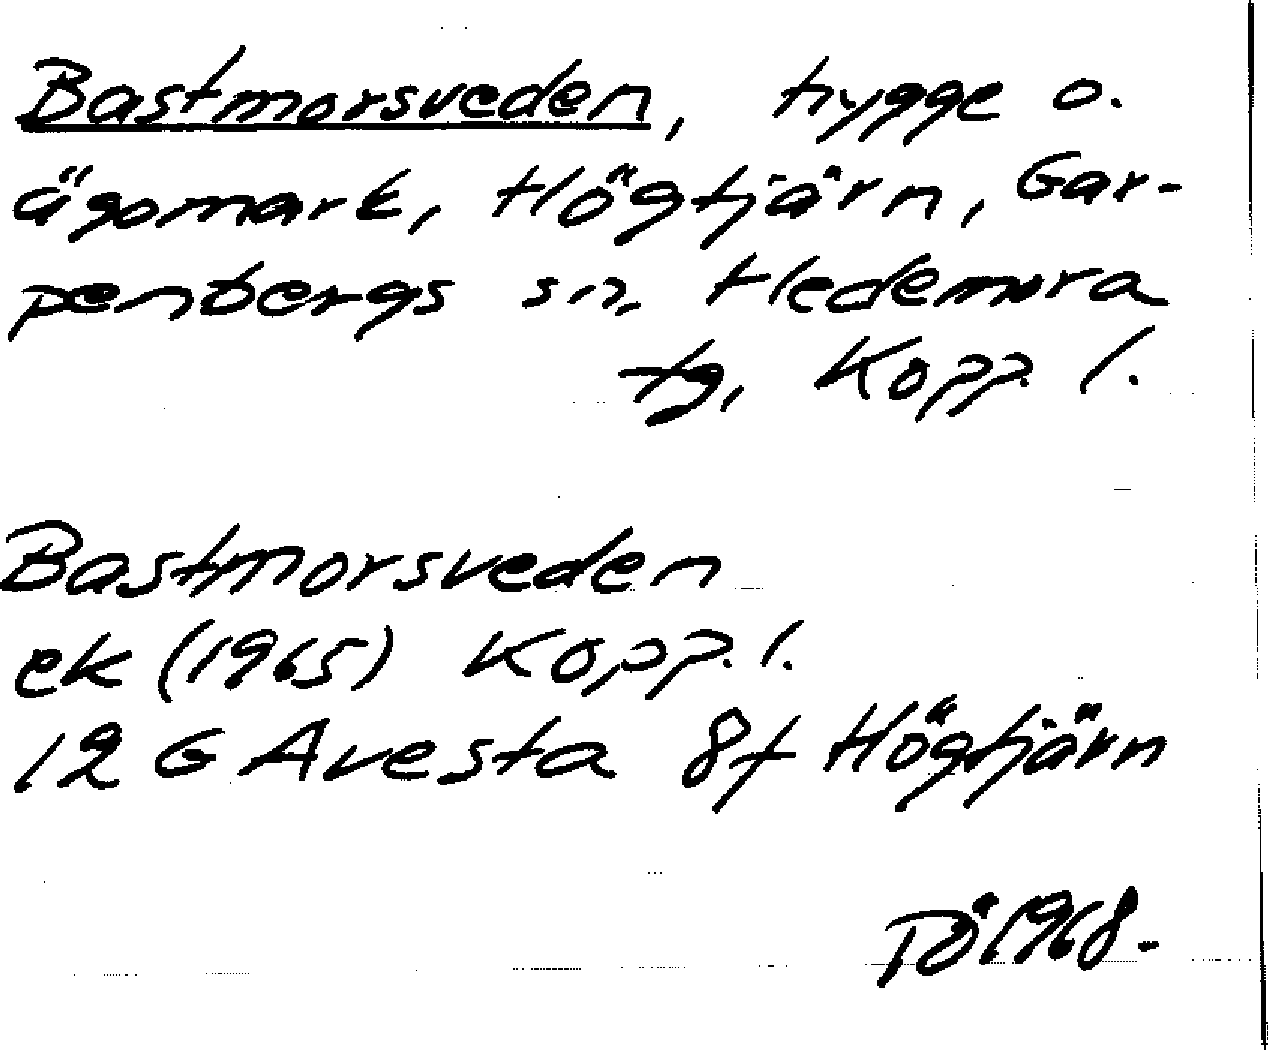 Bastmorsveden, hygge o.
ägomark, Högtjärn, Gar-
penbergs sn. Hedemora
tg, Kopp. l.
Bastmorsveden
ek (1965) Kopp. l.
12 G Avesta 8f Högtjärn
PÖ 1968-